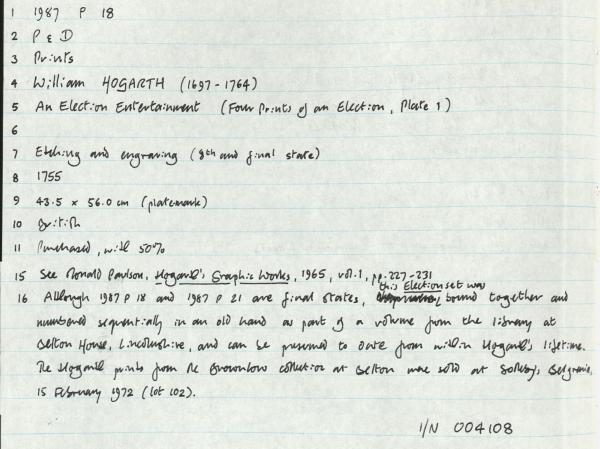 1 1987 P 18
2 P & D
3 Prints
4 William HOGARTH (1697-1764)
5 An Election Entertainment (Four Prints of an Election, Plate 1)
6
7 Etching and engraving (8th and final state)
8 1755
9 43.5 x 56.0 cm (platemark)
10 British
11 Purchased, with 50%
15 See Ronald Paulson, Hogarth's Graphic Works, 1965, vol.1, pp.227-231
this Election set was
16 Although 1987 P 18 and 1987 P 21 are final states, bound together and
numbered sequentially in an old hand as part of a volume from the library at
Belton House, Lincolnshire, and can be presumed to date from within Hogarth's lifetime.
The Hogarth prints from the Brownlow collection at Belton were sold at Sotheby's Belgravia,
15 February 1972 (lot 102).
I/N 004108